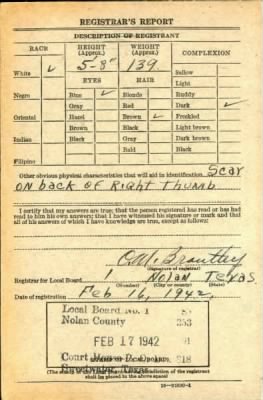 REGISTRAR'S REPORT
DESCRIPTION OF REGISTRANT
RACE
HEIGHT
(Approx.)
WEIGHT
(Approx.)
COMPLEXION
White ✓
5-8"
139
Sallow
Light
EYES
HAIR
Negro
Blue ✓
Blonde
Ruddy
Gray
Red
Dark ✓
Oriental
Hazel
Brown ✓
Freckled
Brown
Black
Light brown
Indian
Black
Gray
Dark brown
Bald
Black
Filipino
Other obvious physical characteristics that will aid in identification Scar
on back of Right Thumb
I certify that my answers are true; that the person registered has read or has had
read to him his own answers; that I have witnessed his signature or mark and that
all of his answers of which I have knowledge are true, except as follows:
O.M. Brantley
(Signature of registrar)
Registrar for Local Board 1 Nolan Texas
(Number) (City or county) (State)
Date of registration Feb 16, 1942
Local Board No. 1
Nolan County
FEB 17 1942
Court House
Sweetwater, Texas
(The stamp of the Local Board having jurisdiction of the registrant
shall be placed in the above space)